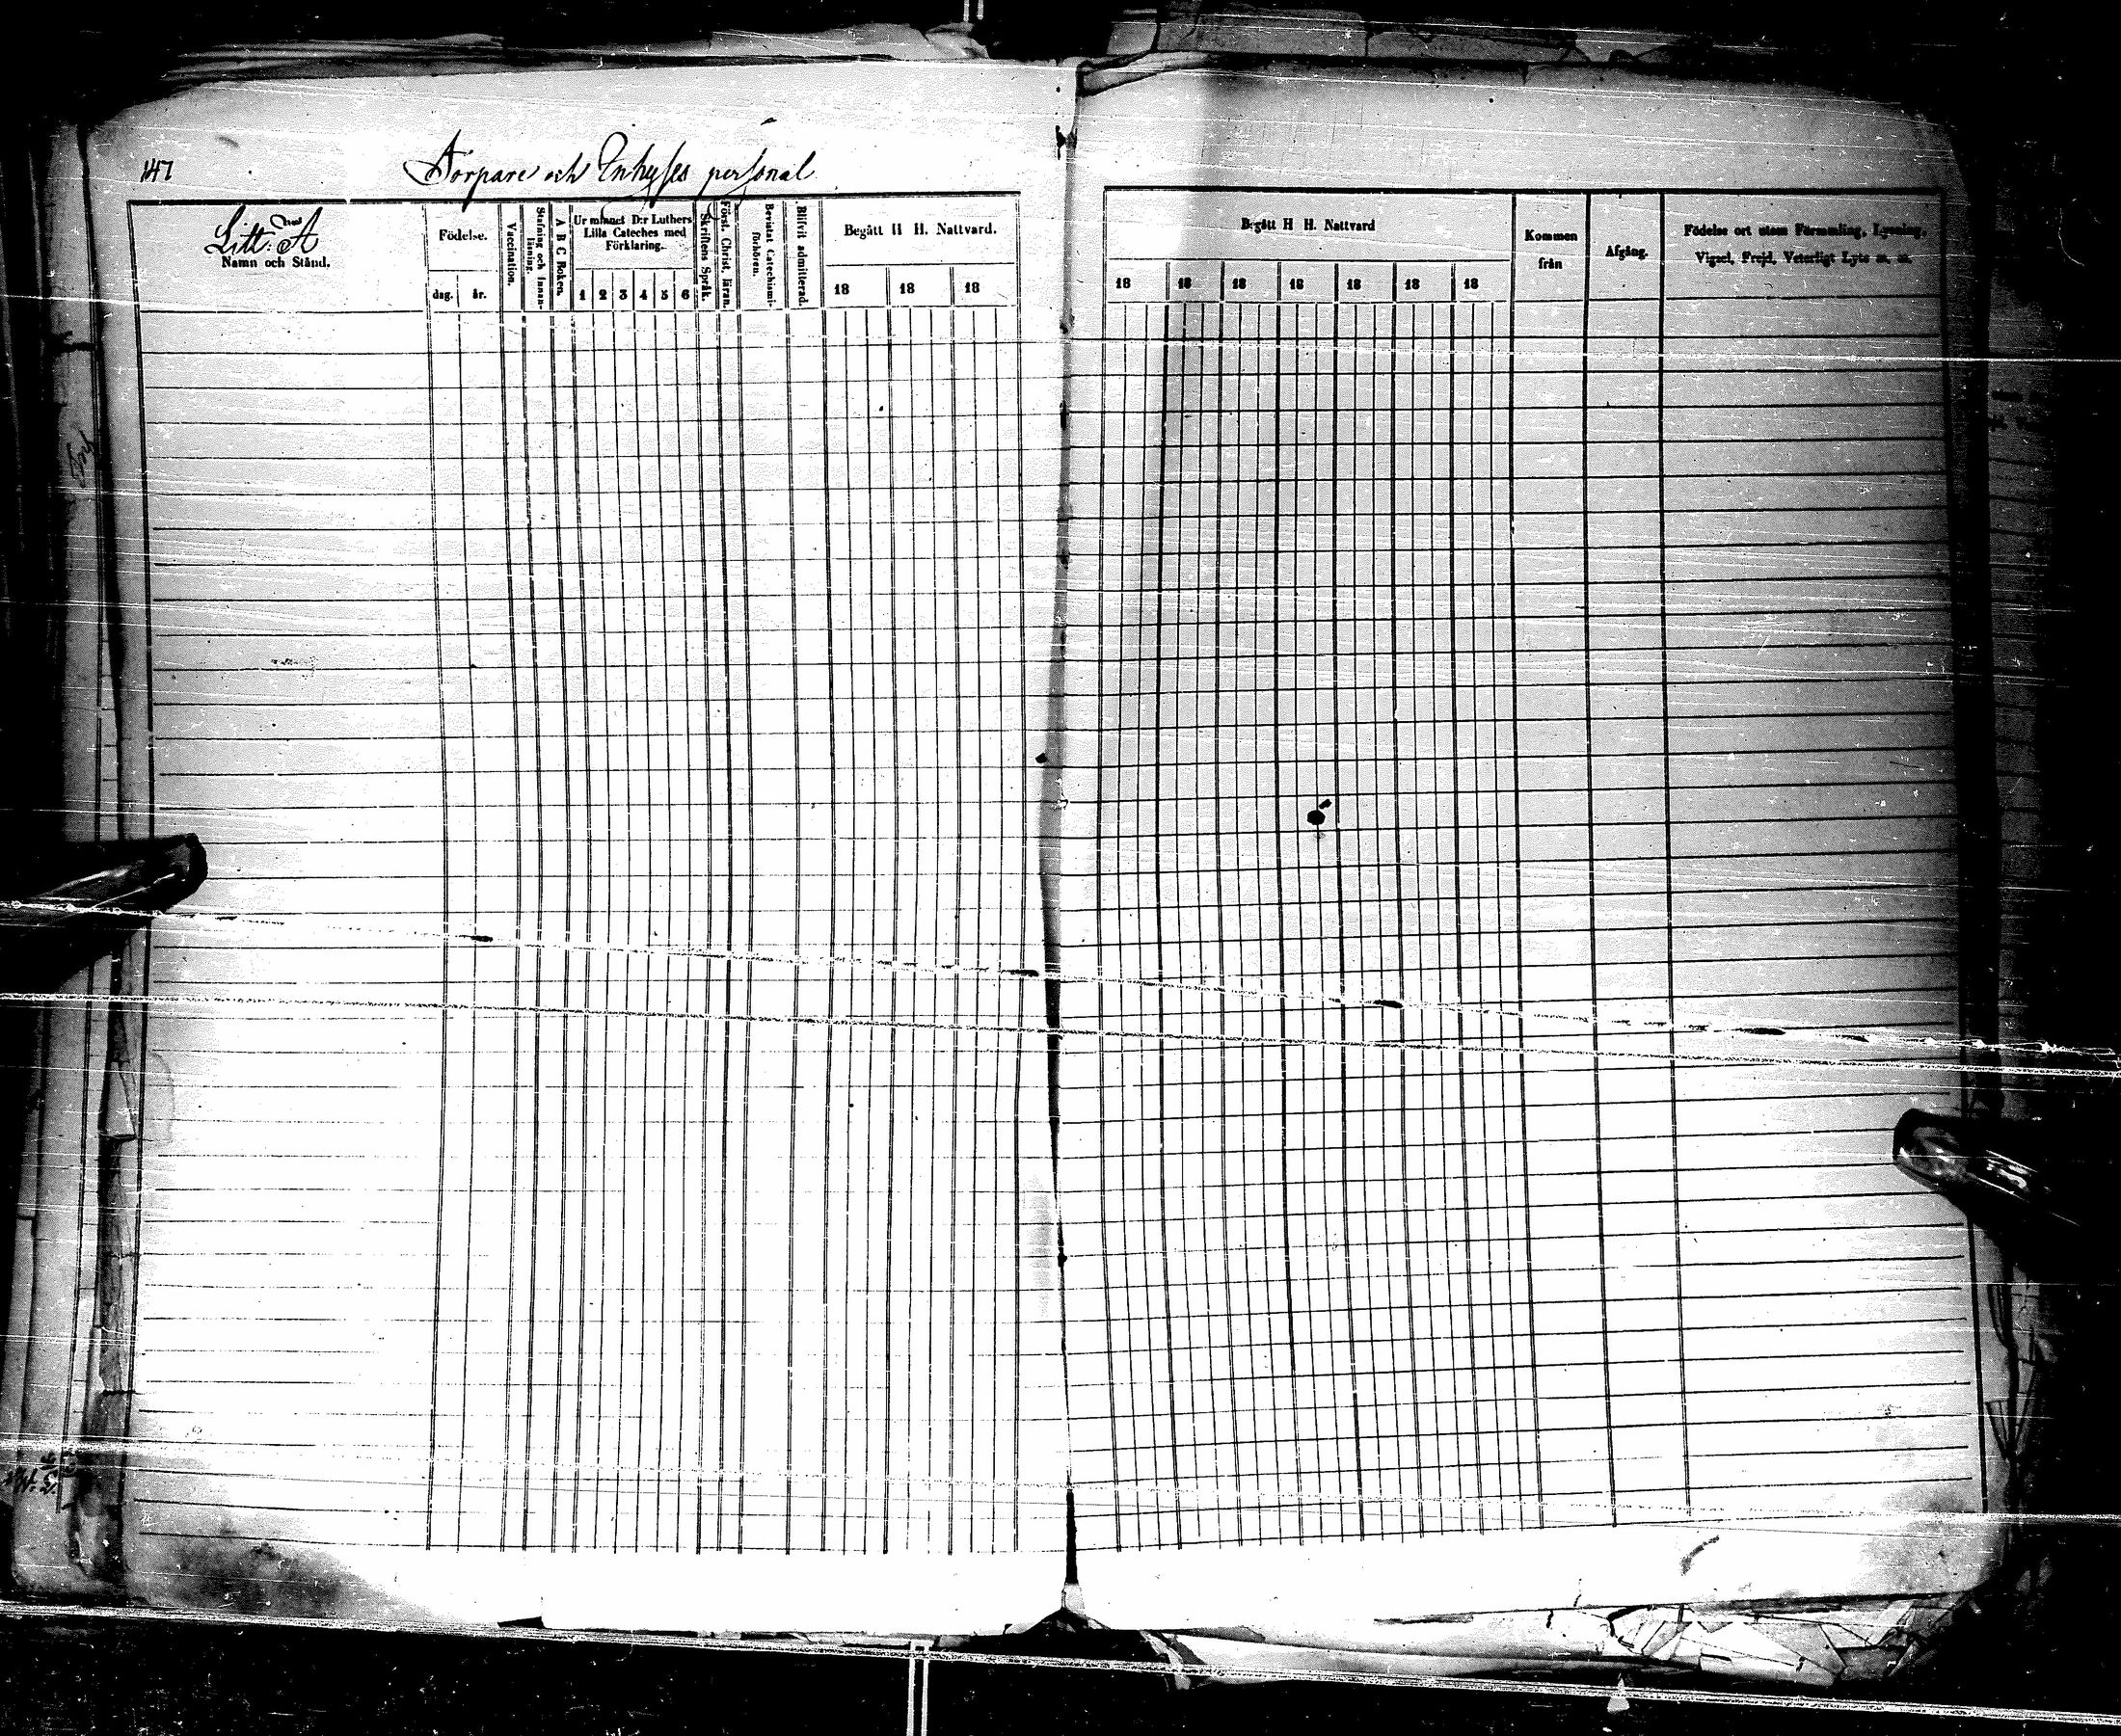 147
Torpare och Inhyses personal
Litt: A
Namn och Stånd.
Födelse.
dag.
år.
Vaccination.
Stafning och Innanläsning.
A B C Boken.
Ur minnet D:r Luthers
Lilla Cateches med
Förklaring.
1 2 3 4 5 6
Skriftens Språk.
Först. Christ. läran.
Bevistat Catechismiförhören.
Blifvit admitterad.
Begått H H. Nattvard.
18 18 18
Begått H H. Nattvard
18 18 18 18 18 18 18
Kommen
från
Afgång.
Födelse ort utom Församling, Lysning,
Vigsel, Frejd, Veterligt Lyte m. m.